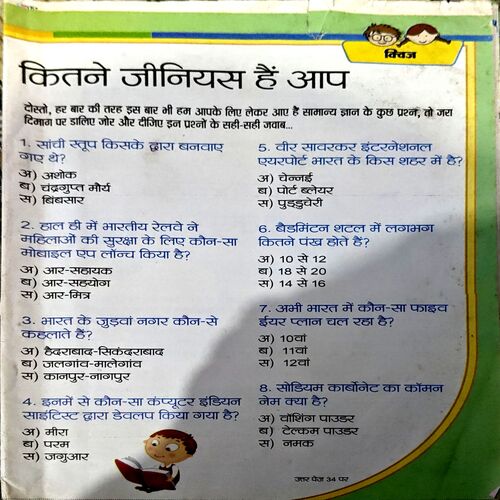 क्विज
कितने जीनियस हैं आप
दोस्तो, हर बार की तरह इस बार भी हम आपके लिए लेकर आए हैं सामान्य ज्ञान के कुछ प्रश्न, तो जरा
दिमाग पर डालिए जोर और दीजिए इन प्रश्नों के सही-सही जवाब...
1. सांची स्तूप किसके द्वारा बनवाए
गए थे?
अ) अशोक
ब) चंद्रगुप्त मौर्य
स) बिंबसार
2. हाल ही में भारतीय रेलवे ने
महिलाओं की सुरक्षा के लिए कौन-सा
मोबाइल एप लॉन्च किया है?
अ) आर-सहायक
ब) आर-सहयोग
स) आर-मित्र
3. भारत के जुड़वां नगर कौन-से
कहलाते हैं?
अ) हैदराबाद-सिकंदराबाद
ब) जलगांव-मालेगांव
स) कानपुर-नागपुर
4. इनमें से कौन-सा कंप्यूटर इंडियन
साइंटिस्ट द्वारा डेवलप किया गया है?
अ) मीरा
ब) परम
स) जगुआर
5. वीर सावरकर इंटरनेशनल
एयरपोर्ट भारत के किस शहर में है?
अ) चेन्नई
ब) पोर्ट ब्लेयर
स) पुडुचेरी
6. बैडमिंटन शटल में लगभग
कितने पंख होते हैं?
अ) 10 से 12
ब) 18 से 20
स) 14 से 16
7. अभी भारत में कौन-सा फाइव
ईयर प्लान चल रहा है?
अ) 10वां
ब) 11वां
स) 12वां
8. सोडियम कार्बोनेट का कॉमन
नेम क्या है?
अ) वॉशिंग पाउडर
ब) टेल्कम पाउडर
स) नमक
उत्तर पेज 34 पर